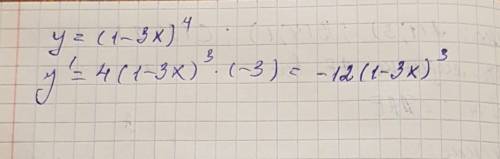 y = (1-3x)⁴
y' = 4(1-3x)³ · (-3) = -12(1-3x)³